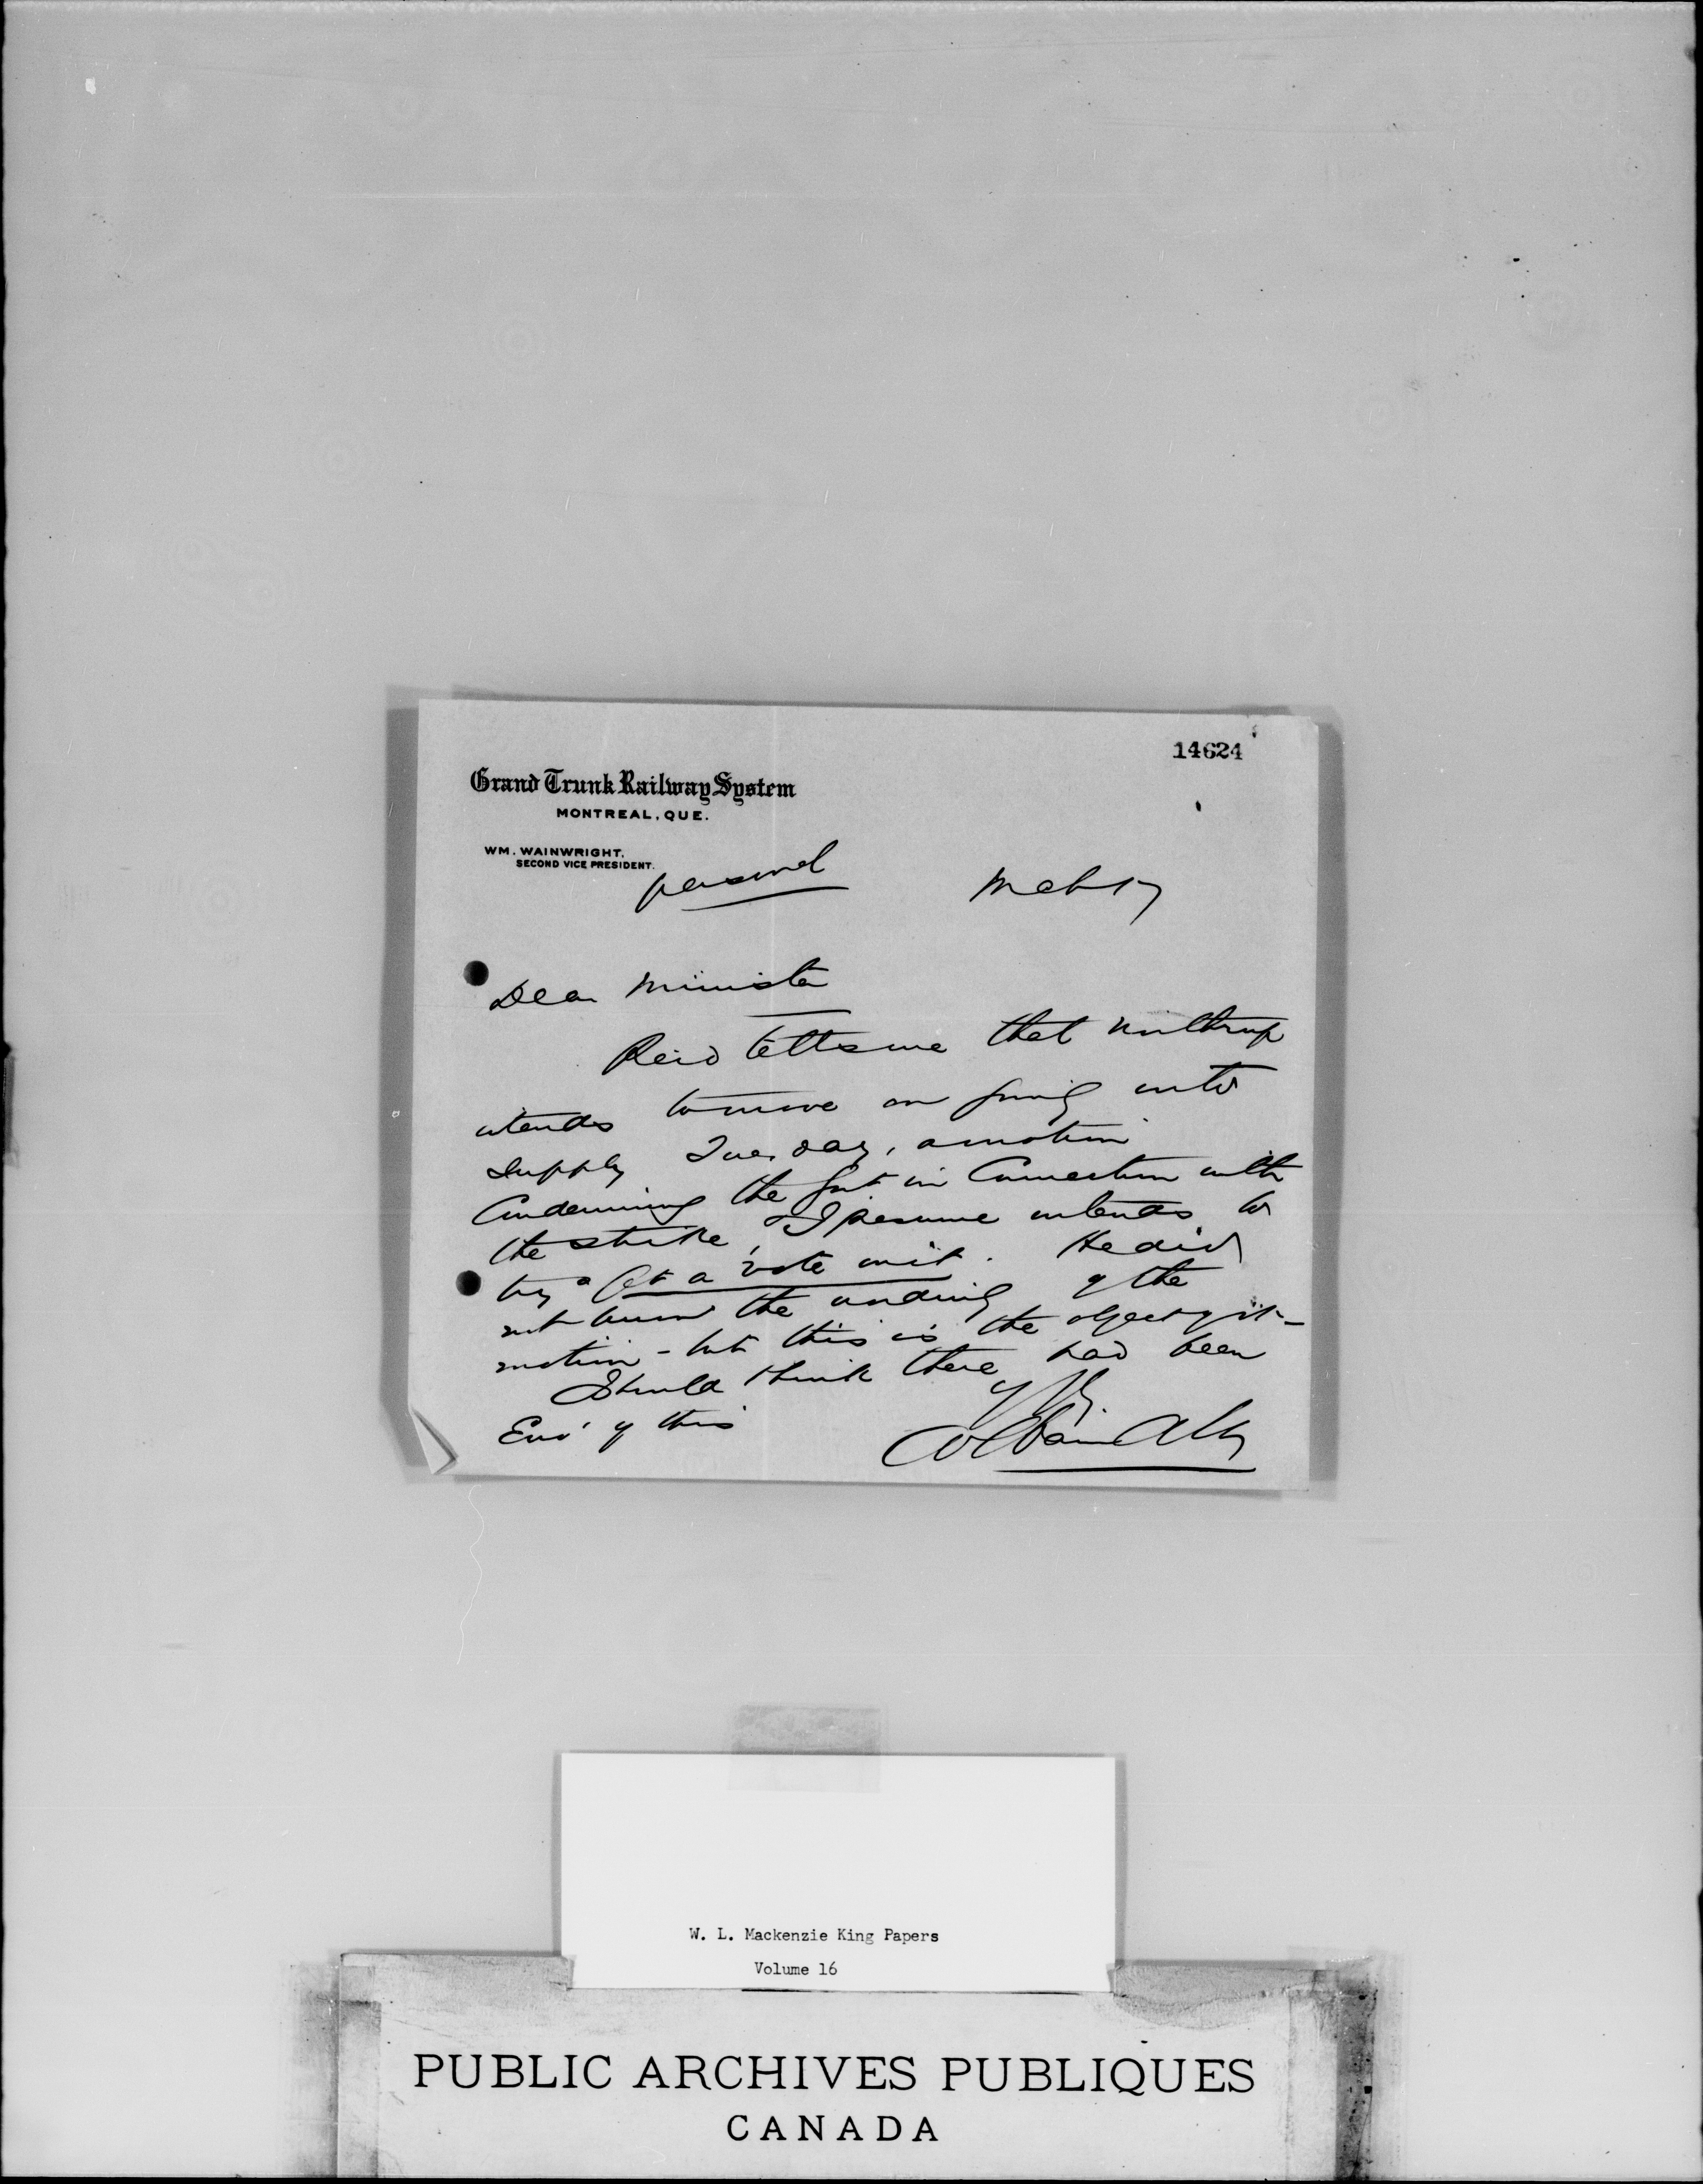 14624
Grand Trunk Railway System
MONTREAL, QUE.
WM. WAINWRIGHT,
SECOND VICE PRESIDENT.
personal
Mch 17
Dear Minister
Reid tells me that Northrup
intends to move on going into
Supply Tuesday, a motion
Condemning the Govt in Connection with
the strike, & I presume intends to
try & Get a vote on it. He did
not know the wording of the
motion - but this is the object of it -
I should think there had been
Eno' of this
W Wainwright
W. L. Mackenzie King Papers
Volume 16
PUBLIC ARCHIVES PUBLIQUES
CANADA